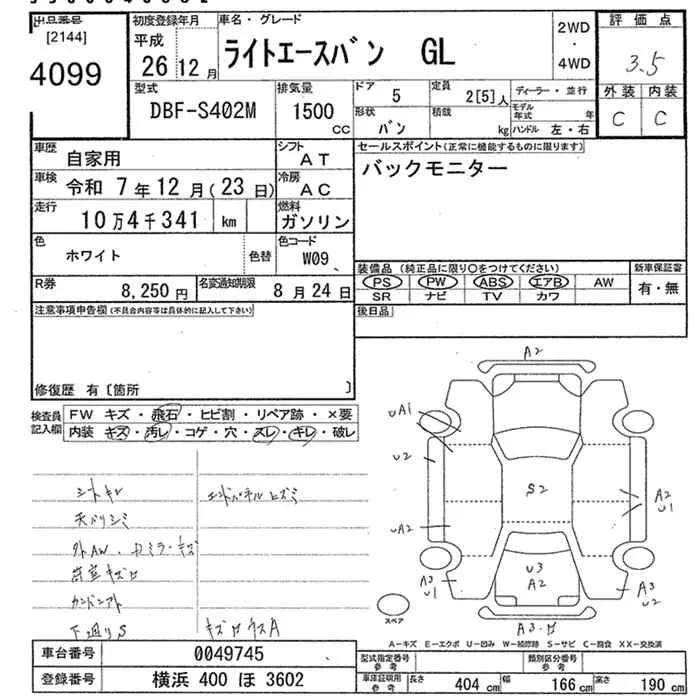 出品番号
[2144]
4099
初度登録年月
平成
26年12月
車名・グレード
ライトエースバン GL
2WD
・
4WD
評価点
3.5
外装 内装
C C
型式
DBF-S402M
排気量
1500
CC
ドア
5
定員
2[5]人
形状
バン
積載
kg
ディーラー・並行
モデル年式 年
ハンドル 左・右
車歴
自家用
シフト
AT
車検
令和 7年12月(23日)
冷房
AC
走行
10万4千341 km
燃料
ガソリン
色
ホワイト
色替
色コード
W09
R券
8,250円
名変通知期限
8月24日
セールスポイント(正常に機能するものに限ります)
バックモニター
装備品 (純正品に限り○をつけてください)
PS PW ABS エアB AW
SR ナビ TV カワ
新車保証書
有・無
後日品
注意事項申告欄(不具合内容等は具体的に記入して下さい)
修復歴 有〔箇所 〕
検査員記入欄
FW キズ・飛石・ヒビ割・リペア跡・×要
内装 キズ・汚レ・コゲ・穴・スレ・キレ・破レ
シートキレ
エンドパネルヒズミ
天バリシミ
外AW、ドミラーキズ
下廻りS
A2
UA1
U2
S2
A2
U1
UA2
U3
A2
A3
U1
A3
U2
スペア
A-キズ E-エクボ U-凹み W-補修跡 S-サビ C-腐食 XX-交換済
車台番号
0049745
登録番号
横浜 400 ほ 3602
型式指定番号
参考
類別区分番号
参考
車庫証明用
参考
長さ 404 cm
幅 166 cm
高さ 190 cm